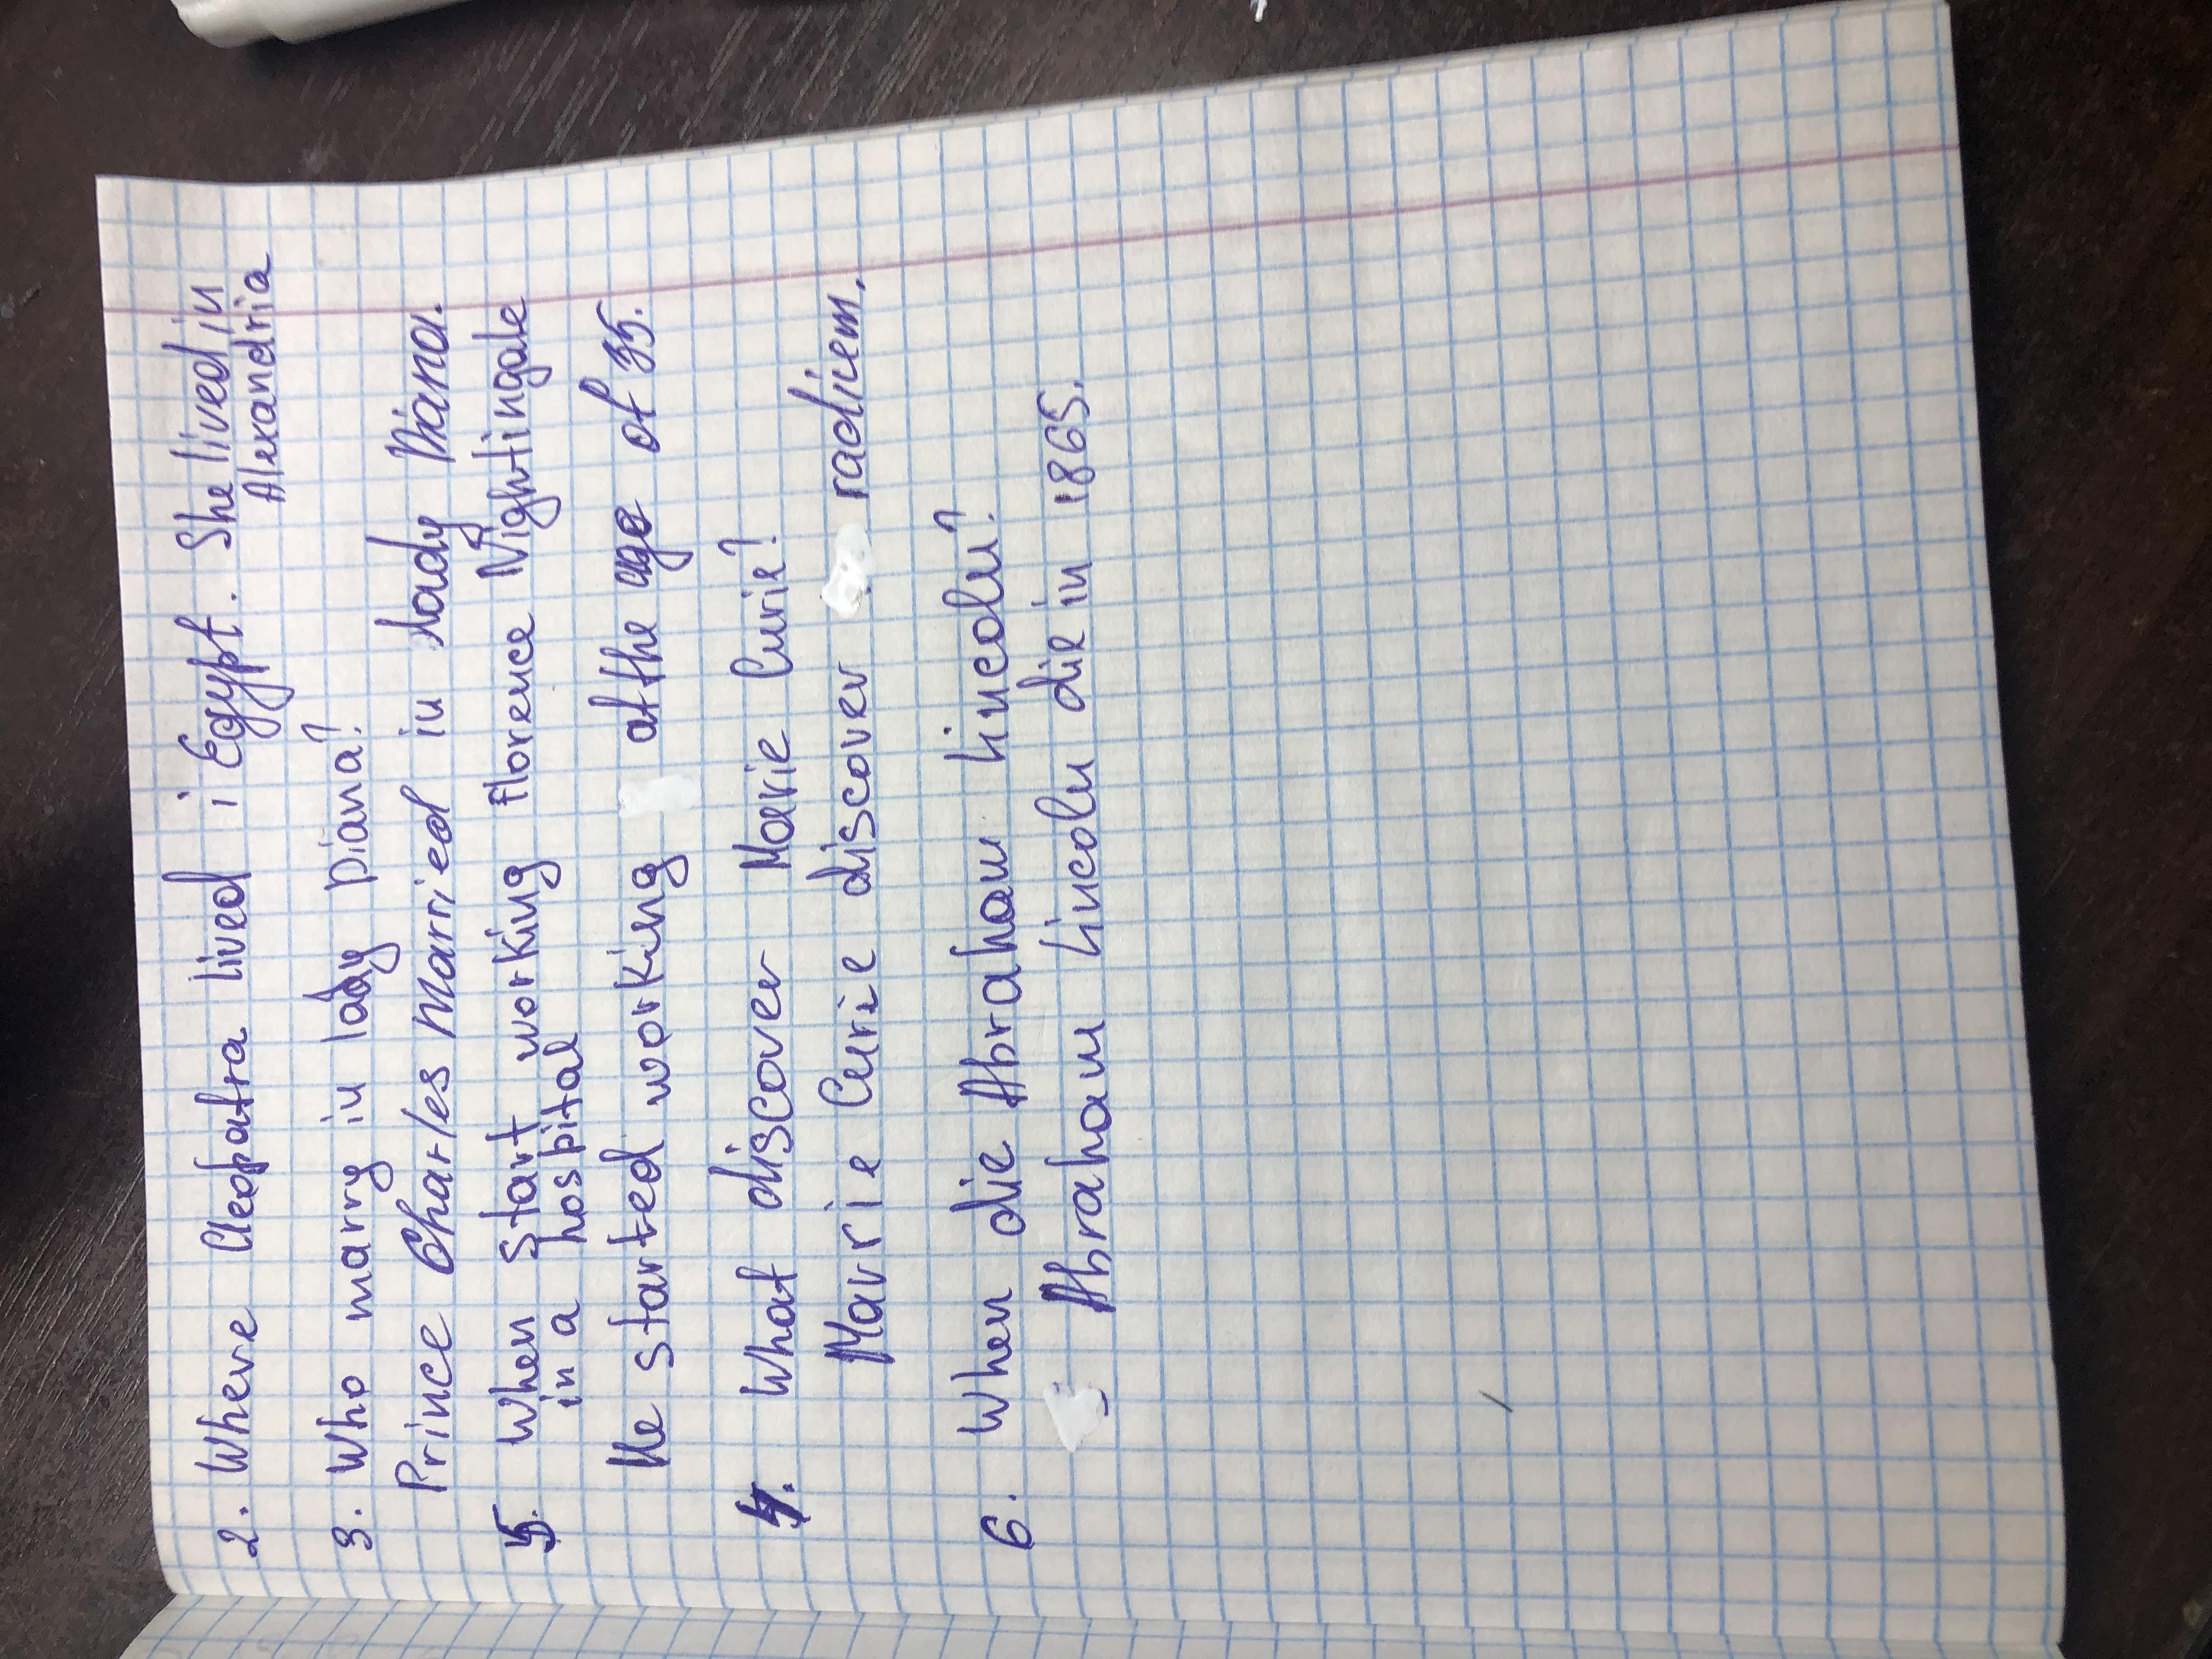 2. Where Cleopatra lived i Egypt. She lived in
Alexandria
3. Who marry in lady Diana?
Prince Charles married in lady Diana.
5. When start working Florence Nightingale
in a hospital
He started working at the age of 35.
4. What discover Marie Curie?
Marie Curie discover radium.
6. When die Abraham Lincoln?
Abraham Lincoln die in 1865.